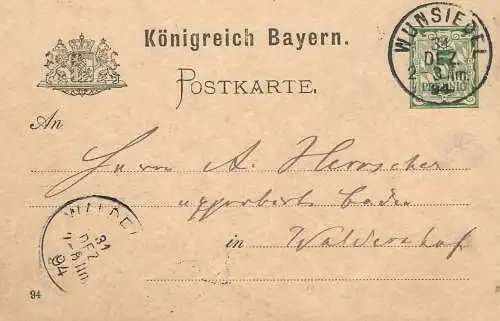 Königreich Bayern.
POSTKARTE.
WUNSIEDEL
31
DEZ.
2-3 Nm.
94
5
PFENNIG
An
Herrn A. Herrscher
approbirt. Bader
in Waldershof
31
DEZ
94
94